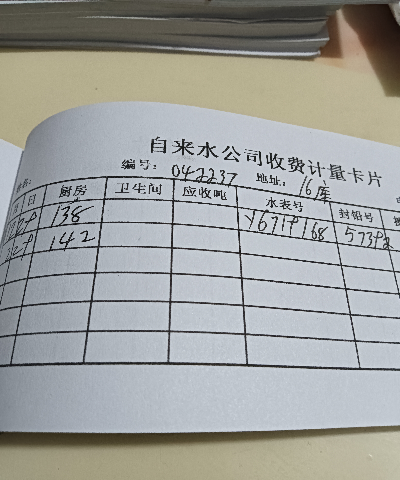 自来水公司收费计量卡片
编号: 042237 地址: 16库
日 厨房 卫生间 应收吨 水表号 封铅号
138 Y671P168
142